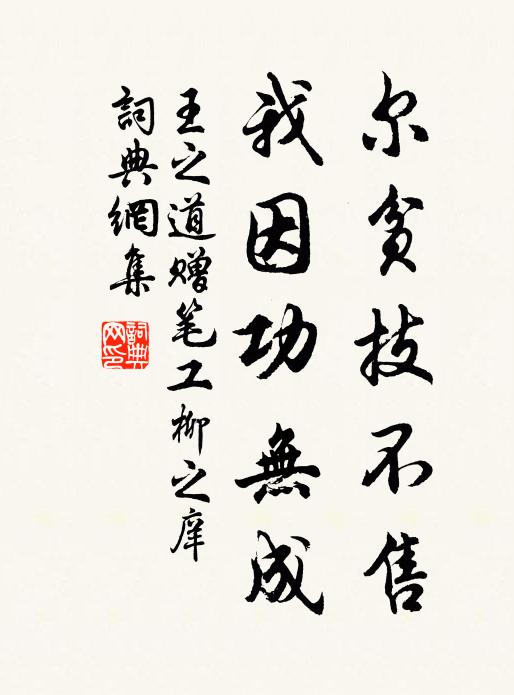 尔贫技不售
我因功無成
王之道赠笔工柳之庠
詞典網集
詞典網印